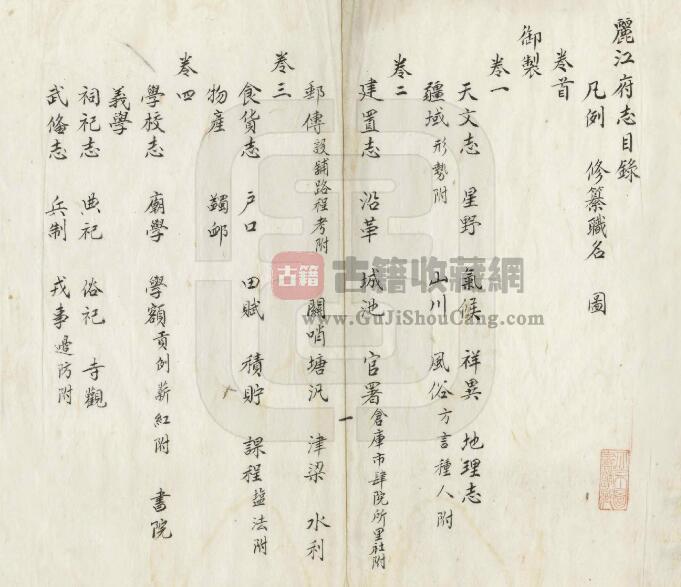 麗江府志目錄
卷首
凡例 修纂職名 圖
御製
卷一
天文志 星野 氣候 祥異 地理志
疆域形勢附 山川 風俗方言種人附
卷二
建置志 沿革 城池 官署倉庫市肆院所里社附
郵傳設舖路程考附 關哨塘汛 津梁 水利
卷三
食貨志 戶口 田賦 積貯 課程鹽法附
物產 蠲卹
卷四
學校志 廟學 學額貢例薪紅附 書院
義學
祠祀志 典祀 俗祀 寺觀
武備志 兵制 戎事邊防附
古籍 古籍收藏網
www.GuJiShouCang.com